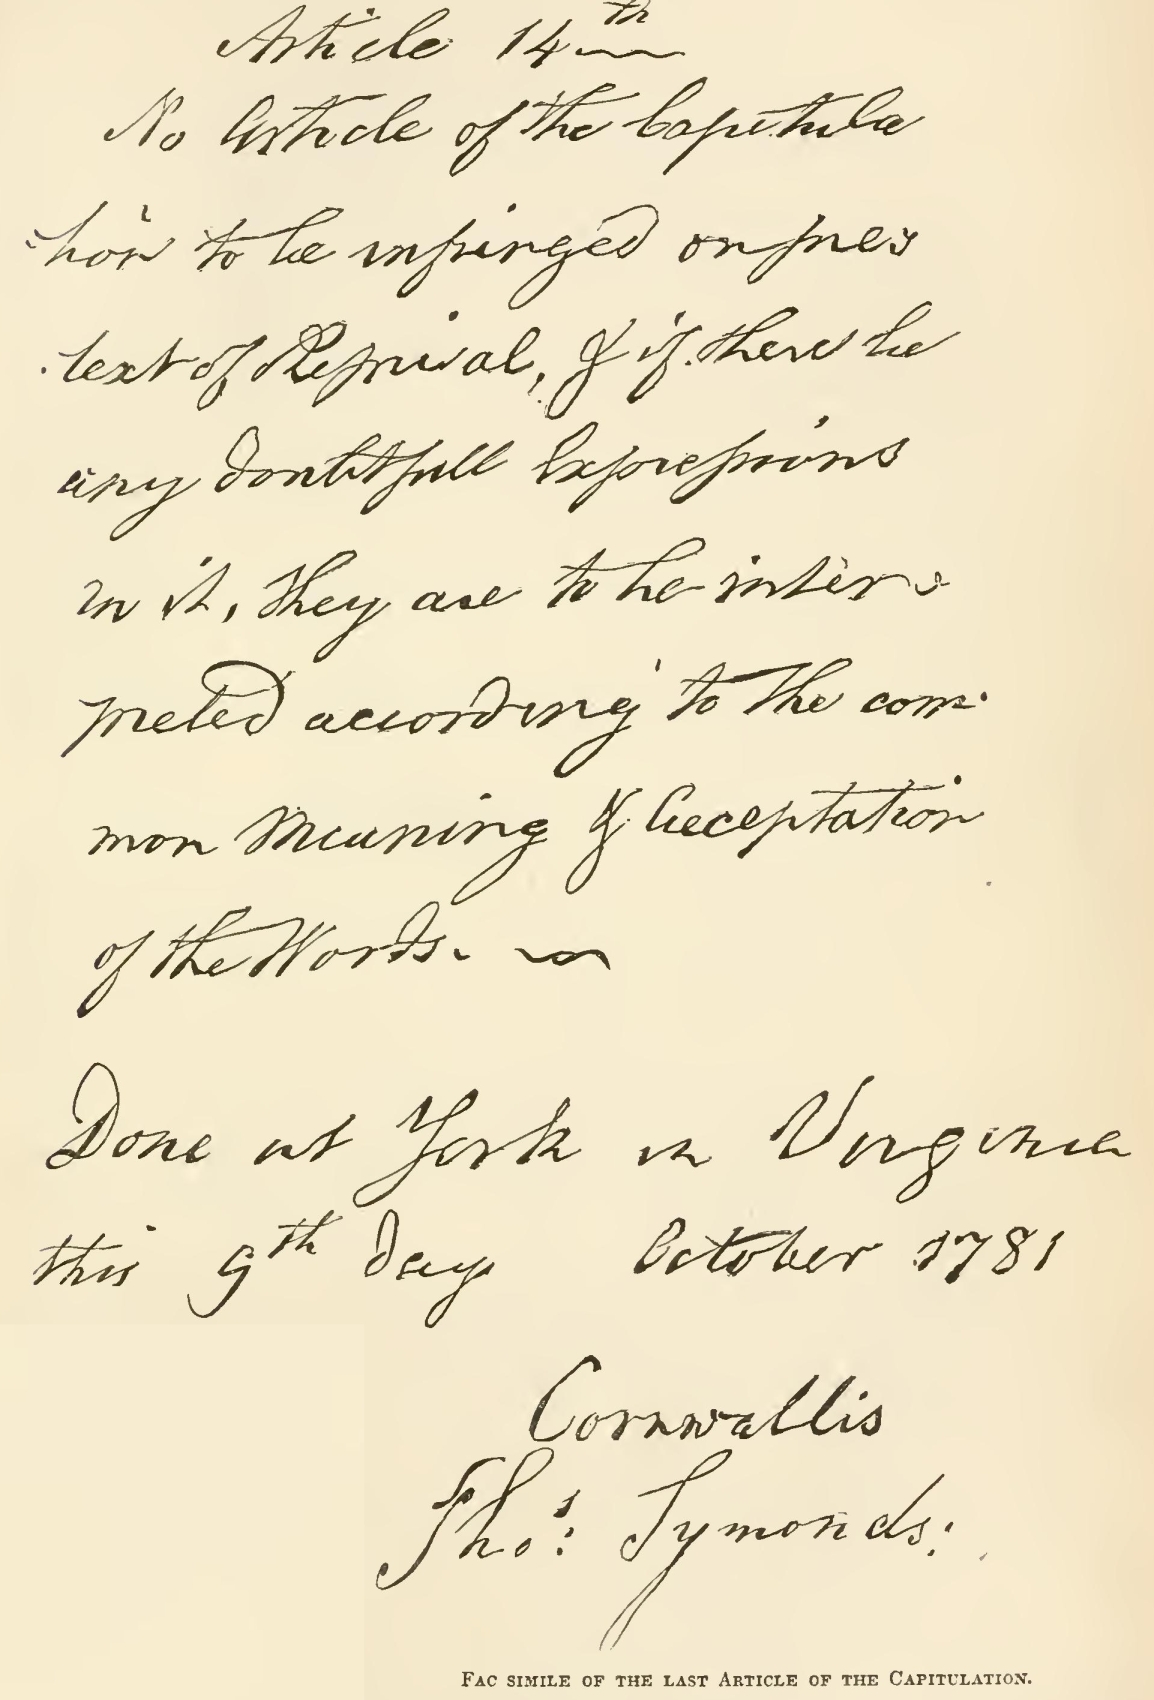 Article 14th
No Article of the Capitula
tion to be infringed on pre
text of Reprisal, & if there be
any doubtfull Expressions
in it, they are to be inter
preted according to the com
mon Meaning & Acceptation
of the Words.
Done at York in Virginia
this 9th day October 1781
Cornwallis
Thos: Symonds:
FAC SIMILE OF THE LAST ARTICLE OF THE CAPITULATION.